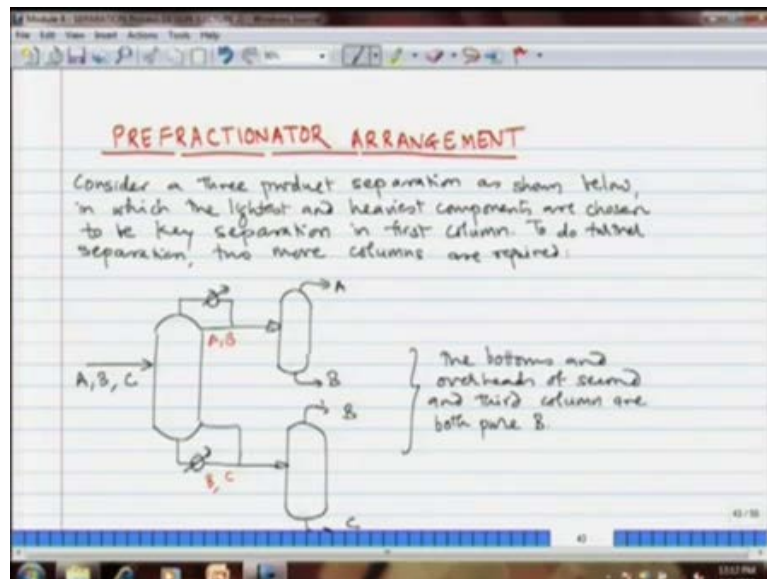 File Edit View Insert Actions Tools Help
PREFRACTIONATOR ARRANGEMENT
Consider a Three product separation as shown below,
in which the lightest and heaviest components are chosen
to be key separation in first column. To do further
separation, two more columns are required:
A
A,B
A, B, C
B
B
B, C
C
The bottoms and
overheads of second
and Third column are
both pure B.
43